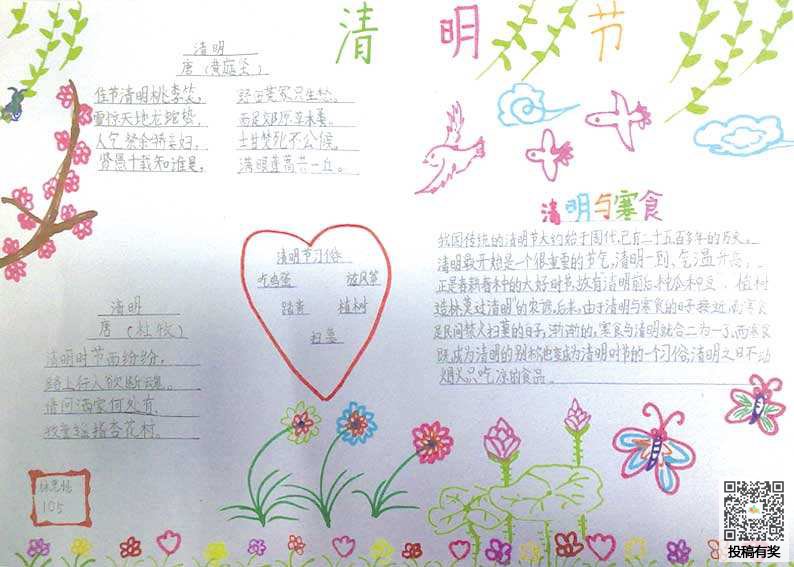 清明节
清明
唐（黄庭坚）
佳节清明桃李笑，
野田荒冢只生愁。
雷惊天地龙蛇蛰，
雨足郊原草木柔。
人乞祭余骄妾妇，
士甘焚死不公候。
贤愚千载知谁是，
满眼蓬蒿共一丘。
清明与寒食
我国传统的清明节大约始于周代,已有二千五百多年的历史。
清明最开始是一个很重要的节气,清明一到,气温升高,
正是春耕春种的大好时节,故有清明前后,种瓜种豆、植树
造林,莫过清明"的农谚,后来,由于清明与寒食的日子接近,而寒食
是民间禁火扫墓的日子,渐渐的,寒食与清明就合二为一了,而寒食
既成为清明的别称,也变成为清明时节的一个习俗,清明之日不动
烟火,只吃凉的食品。
清明节习俗
吃鸡蛋 放风筝
踏青 植树
扫墓
清明
唐（杜牧）
清明时节雨纷纷，
路上行人欲断魂。
借问酒家何处有，
牧童遥指杏花村。
105
投稿有奖